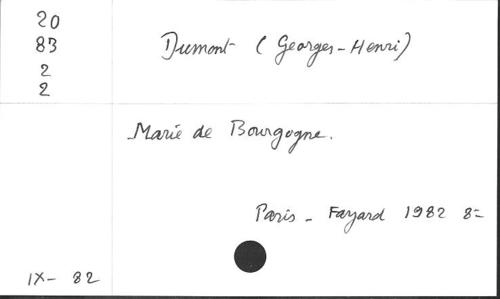 20
83
2
2
Dumont (Georges-Henri)
Marie de Bourgogne.
Paris - Fayard 1982 8=
IX- 82